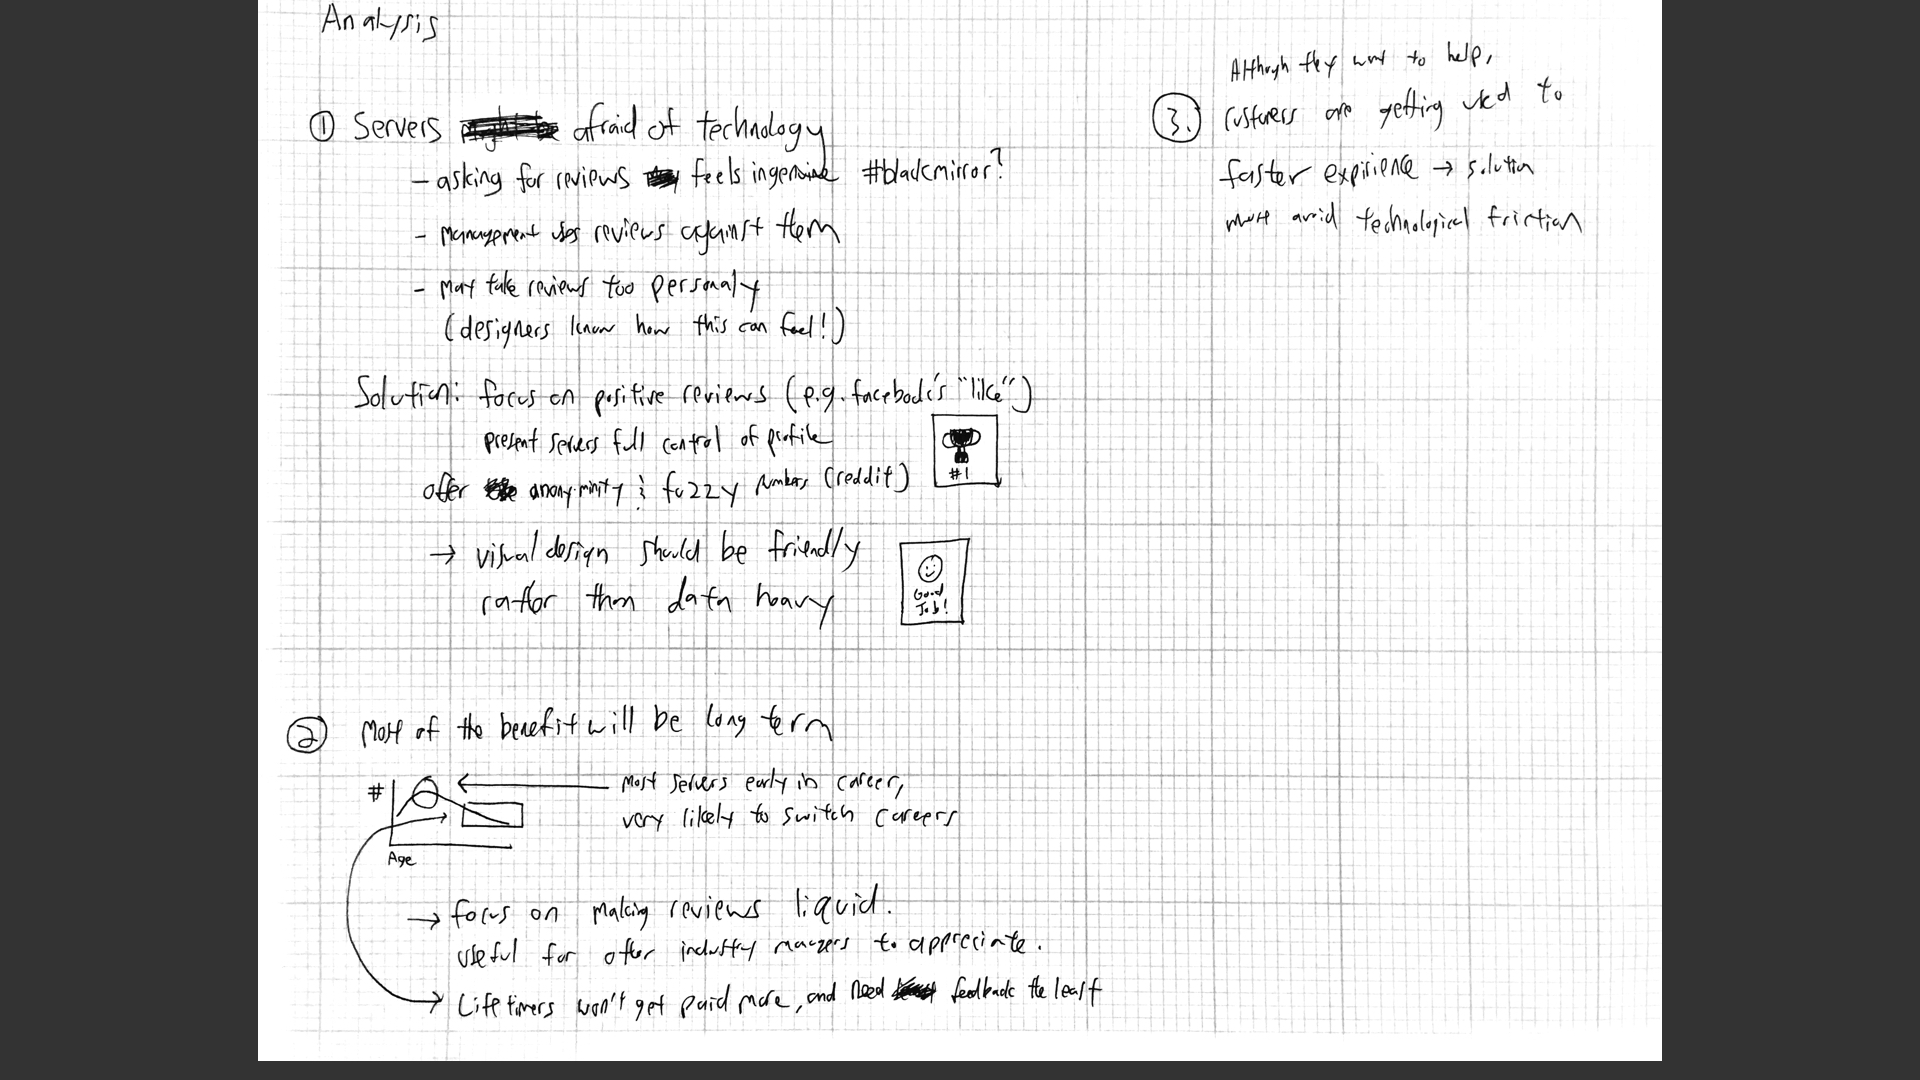 Analysis
① Servers afraid of technology
- asking for reviews feels ingenuine #blackmirror?
- management uses reviews against them
- May take reviews too personaly
(designers know how this can feel!)
Solution: focus on positive reviews (e.g. facebook's "like")
present servers full control of profile
#1
offer anonyminity & fuzzy numbers (reddit)
→ visual design should be friendly
rather than data heavy
Good
Job!
② Most of the benefit will be long term
#
Most servers early in career,
very likely to switch careers
Age
→ focus on making reviews liquid.
useful for other industry managers to appreciate.
→ Life timers won't get paid more, and need feedback the least
Although they want to help,
3. customers are getting used to
faster expirience → solution
must avoid technological friction